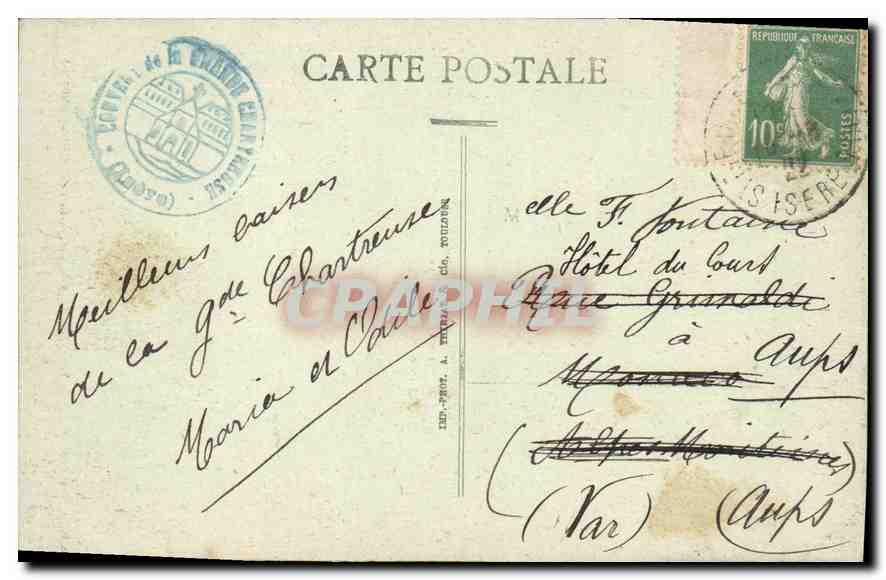 CARTE POSTALE
COUVENT de la GRANDE CHARTREUSE
RÉPUBLIQUE FRANÇAISE
10c
POSTES
22
ISERE
Meilleurs baisers
de la gde Chartreuse
Maria et Odile
IMP.-PHOT. A. THIRIAT & Cie, TOULOUSE
CPAPHIL
Melle F. Fontaine
Hôtel du Cours
Rue Grimaldi
à
Monaco Aups
(Alpes Maritimes)
(Var) (Aups